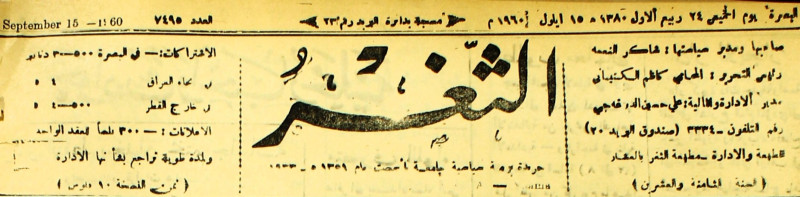 البصرة يوم الخميس ٢٤ ربيع الاول ١٣٨٠ هـ ١٥ ايلول ١٩٦٠ م
"مسجلة بدائرة البريد رقم ٢٣"
العدد ٧٤٩٥
September 15 - 1960
صاحبها ومدير سياستها: شاكر النعمه
رئيس التحرير: المحامي كاظم
مدير الادارة والمالية: علي حسين
رقم التلفون - ٣٣٣٤ (صندوق البريد ٢٠)
المطبعة والادارة - مطبعة الثغر بالعشار
(السنة الثامنة والعشرين)
الثغر
جريدة يومية سياسية جامعة تأسست عام ١٣٥١ هـ - ١٩٣٣
الاشتراكات: - في البصرة ٥٠٠-٣ دنانير
في خارج القطر ٥٠٠-٤
الاعلانات: - ٣٠٠ فلساً للعقد الواحد
ولمدة طويلة تراجع بشأنها الادارة
(ثمن النسخة ١٠ فلوس)